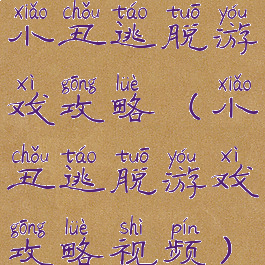 xiǎo chǒu táo tuō yóu
小丑逃脱游
xì gōng lüè xiǎo
戏攻略（小
chǒu táo tuō yóu xì
丑逃脱游戏
gōng lüè shì pín
攻略视频）